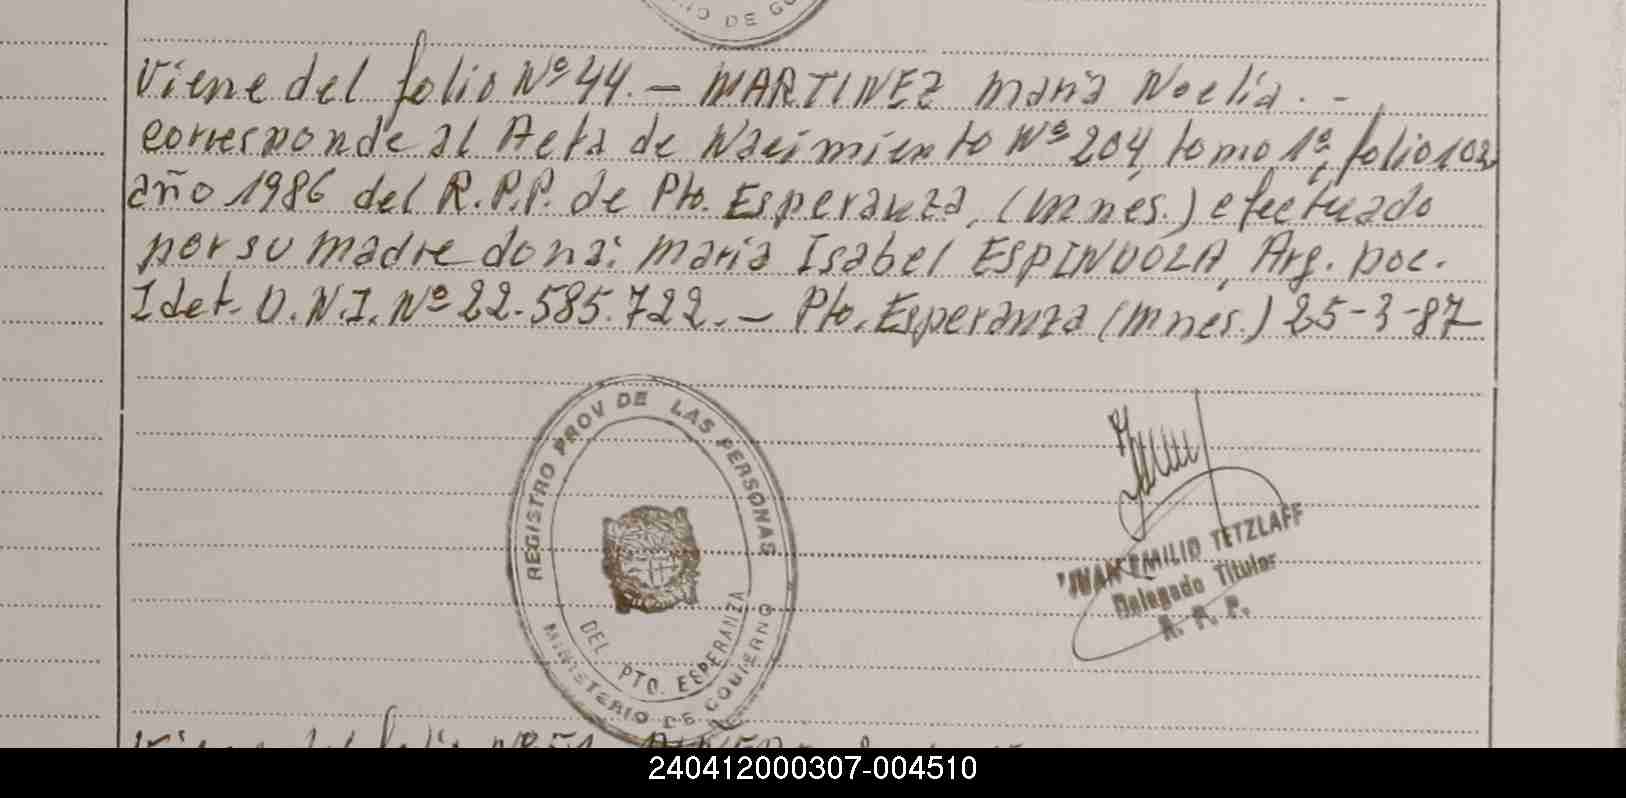 O DE GO
Viene del folio Nº 44. - MARTINEZ María Noelia. -
corresponde al Acta de Nacimiento Nº 204, tomo 1º, folio 102
año 1986 del R.P.P. de Pto. Esperanza, (mnes.) efectuado
por su madre dona: María Isabel ESPINDOLA, Arg. Doc.
Idet. D.N.I. Nº 22.585.722. - Pto. Esperanza (mnes.) 25-3-87
REGISTRO PROV DE LAS PERSONAS
DEL PTO. ESPERANZA
MINISTERIO DE GOBIERNO
JUAN EMILIO TETZLAFF
Delegado Titular
R. P. P.
Viene del folio Nº 51
240412000307-004510